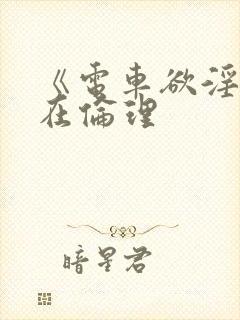 《電車欲淫
在倫理
暗星君